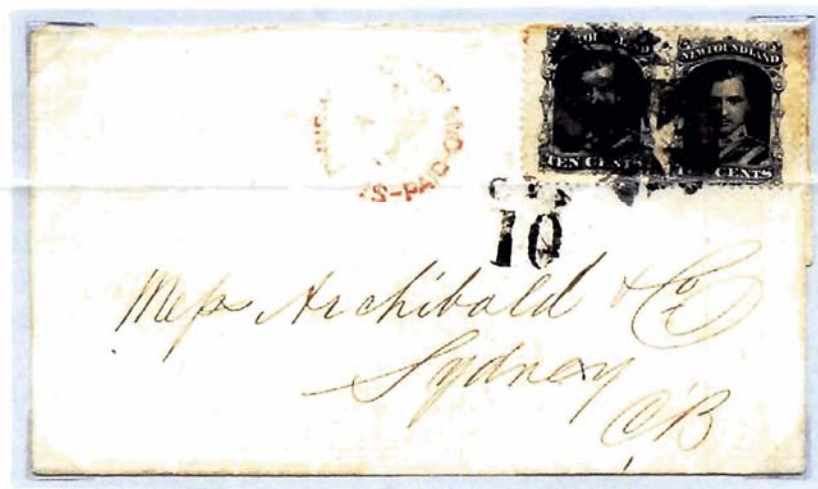 NEWFOUNDLAND
TEN CENTS
CENTS
S-PAID
10
Mess Archibald & Co
Sydney
CB